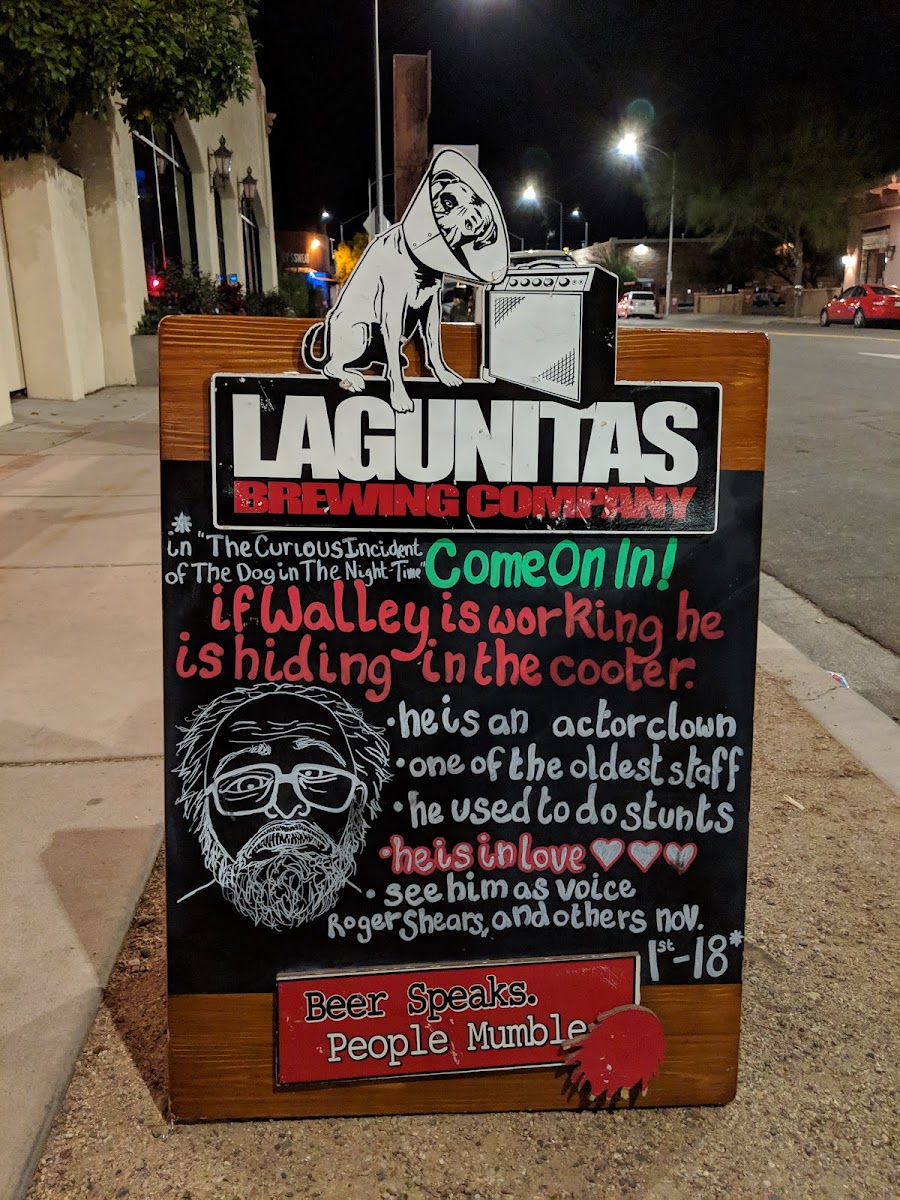 LAGUNITAS
BREWING COMPANY
* in "The Curious Incident
of The Dog in The Night-Time"
Come On In!
if Walley is working he
is hiding in the cooler.
• he is an actor clown
• one of the oldest staff
• he used to do stunts
• he is in love ♥♥♥
• see him as voice
Roger Shears, and others nov.
1st-18*
Beer Speaks.
People Mumble